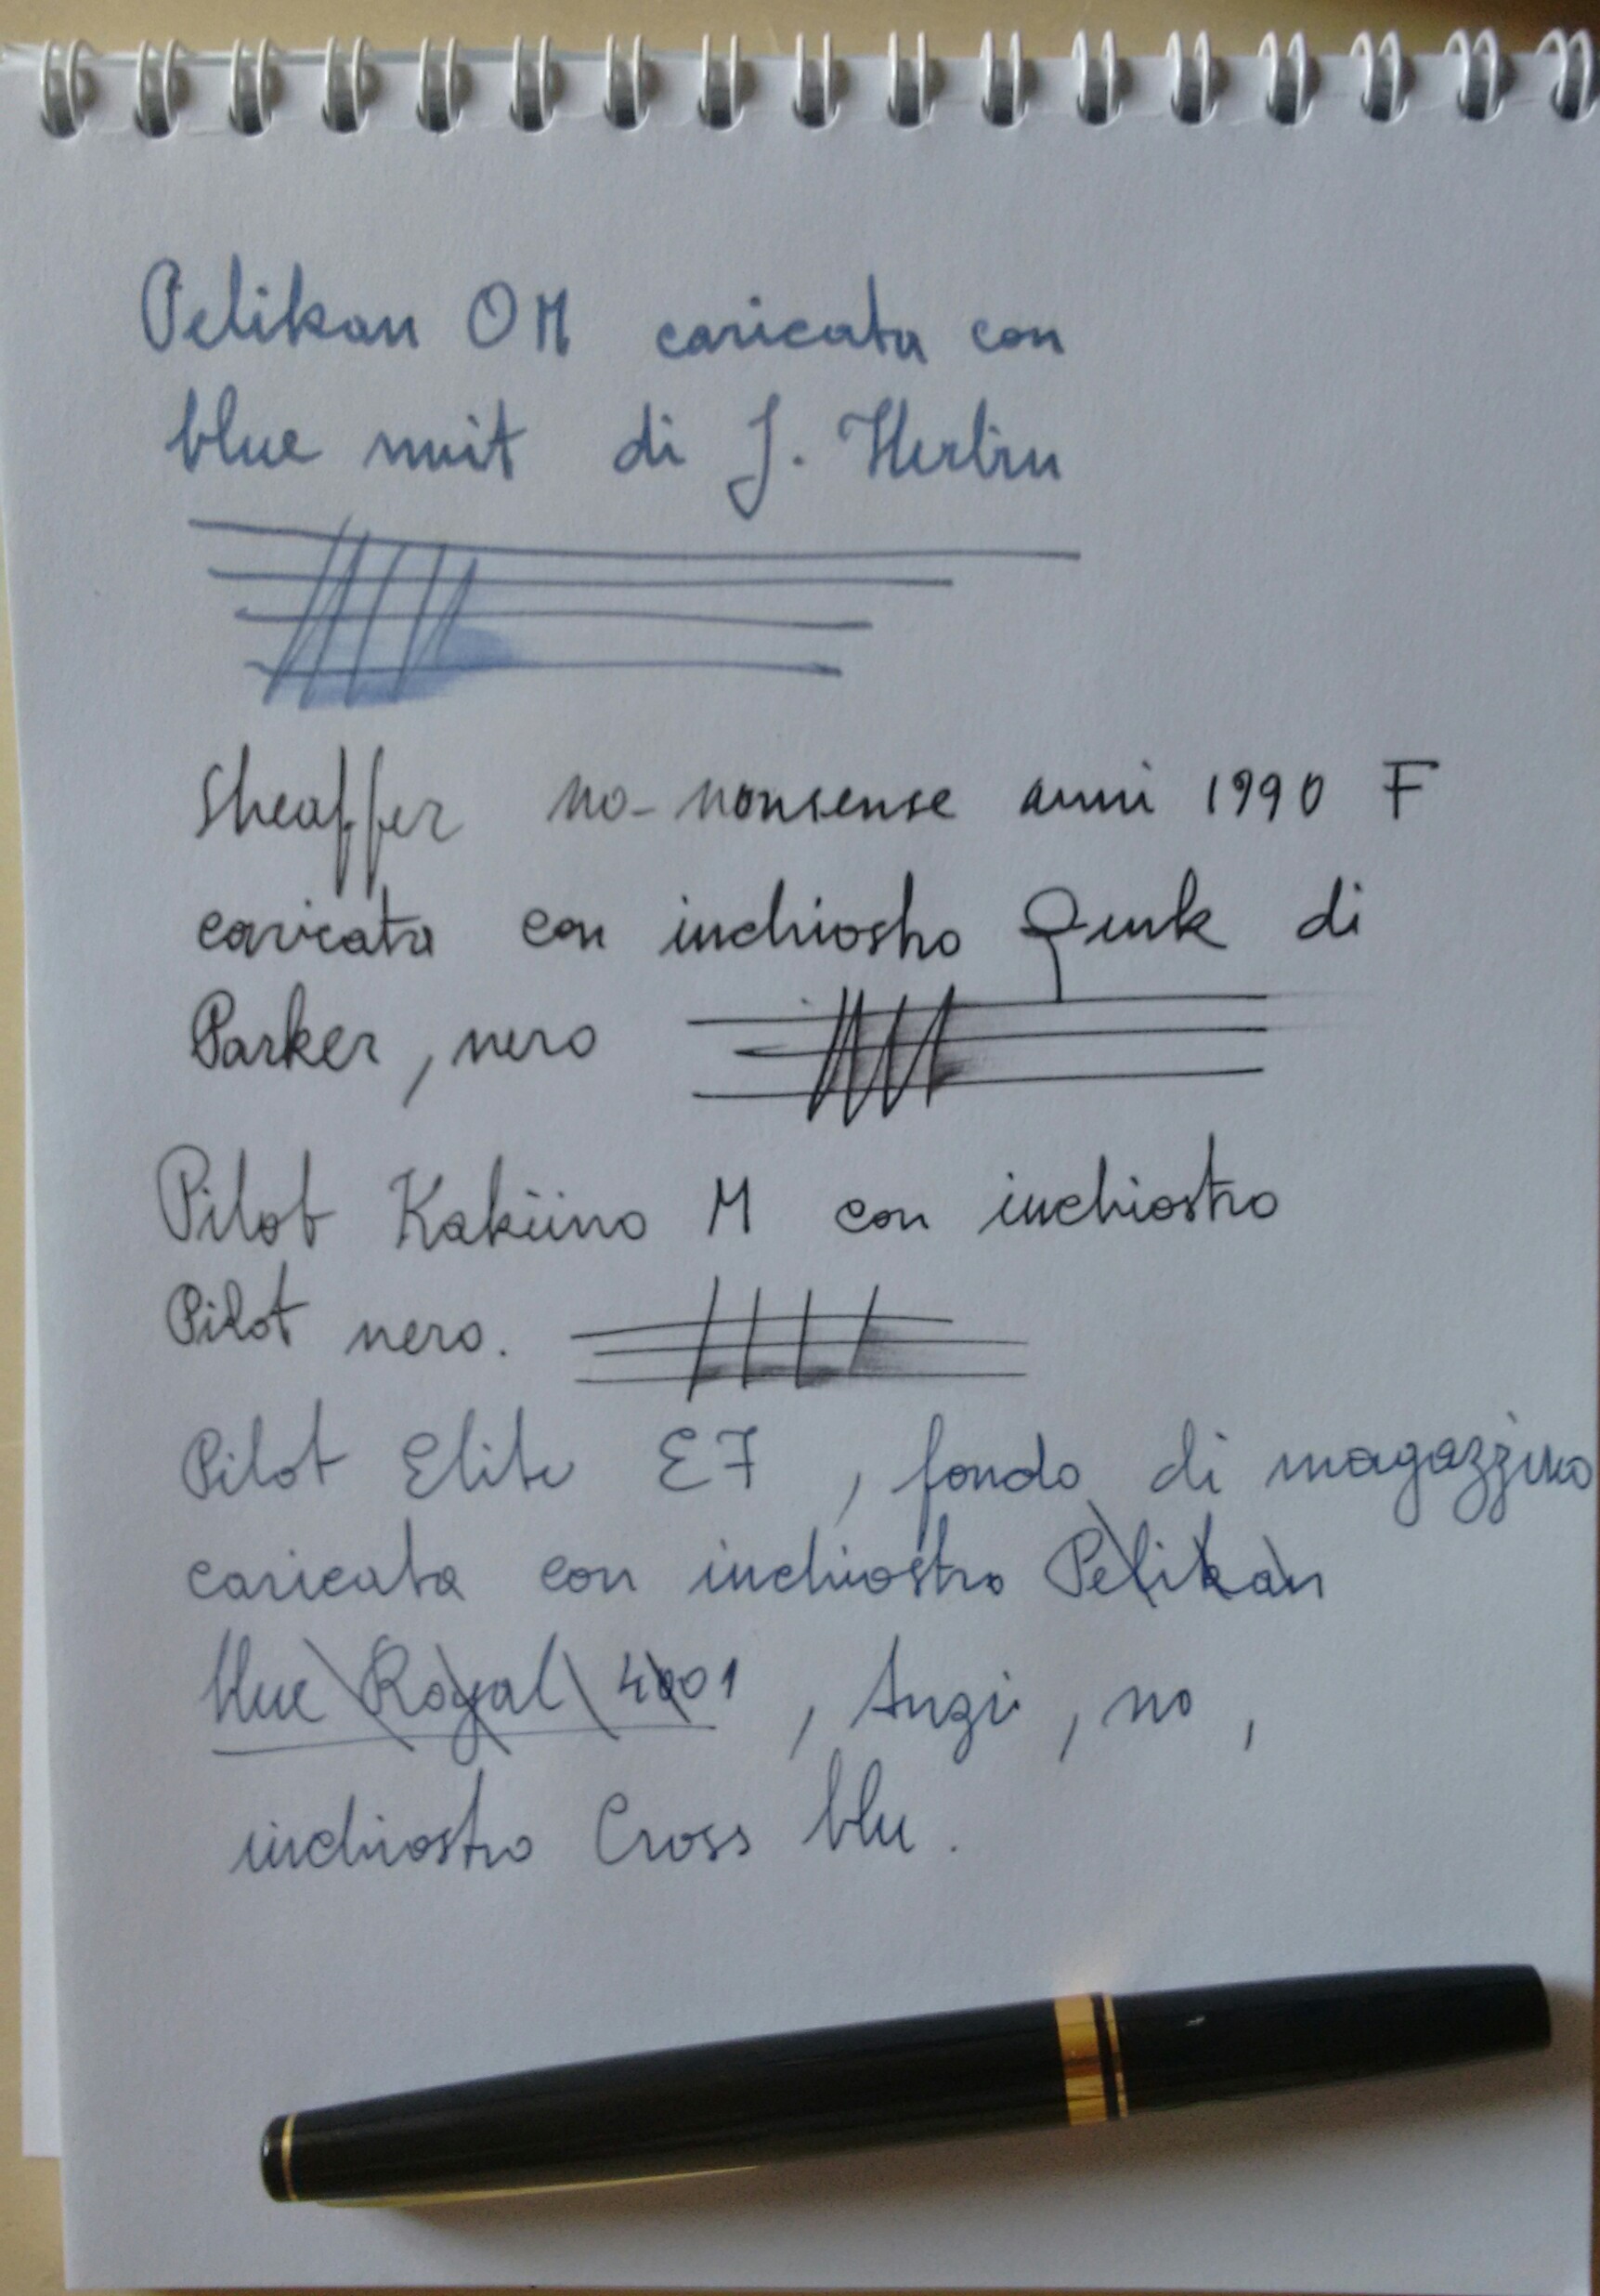 Pelikan OM caricata con
blue nuit di J. Herbin
Sheaffer no-nonsense anni 1990 F
caricata con inchiostro Quink di
Parker, nero
Pilot Kakūno M con inchiostro
Pilot nero.
Pilot Elite EF, fondo di magazzino
caricata con inchiostro Pelikan
blue Royal 4001, Anzi, no,
inchiostro Cross blu.